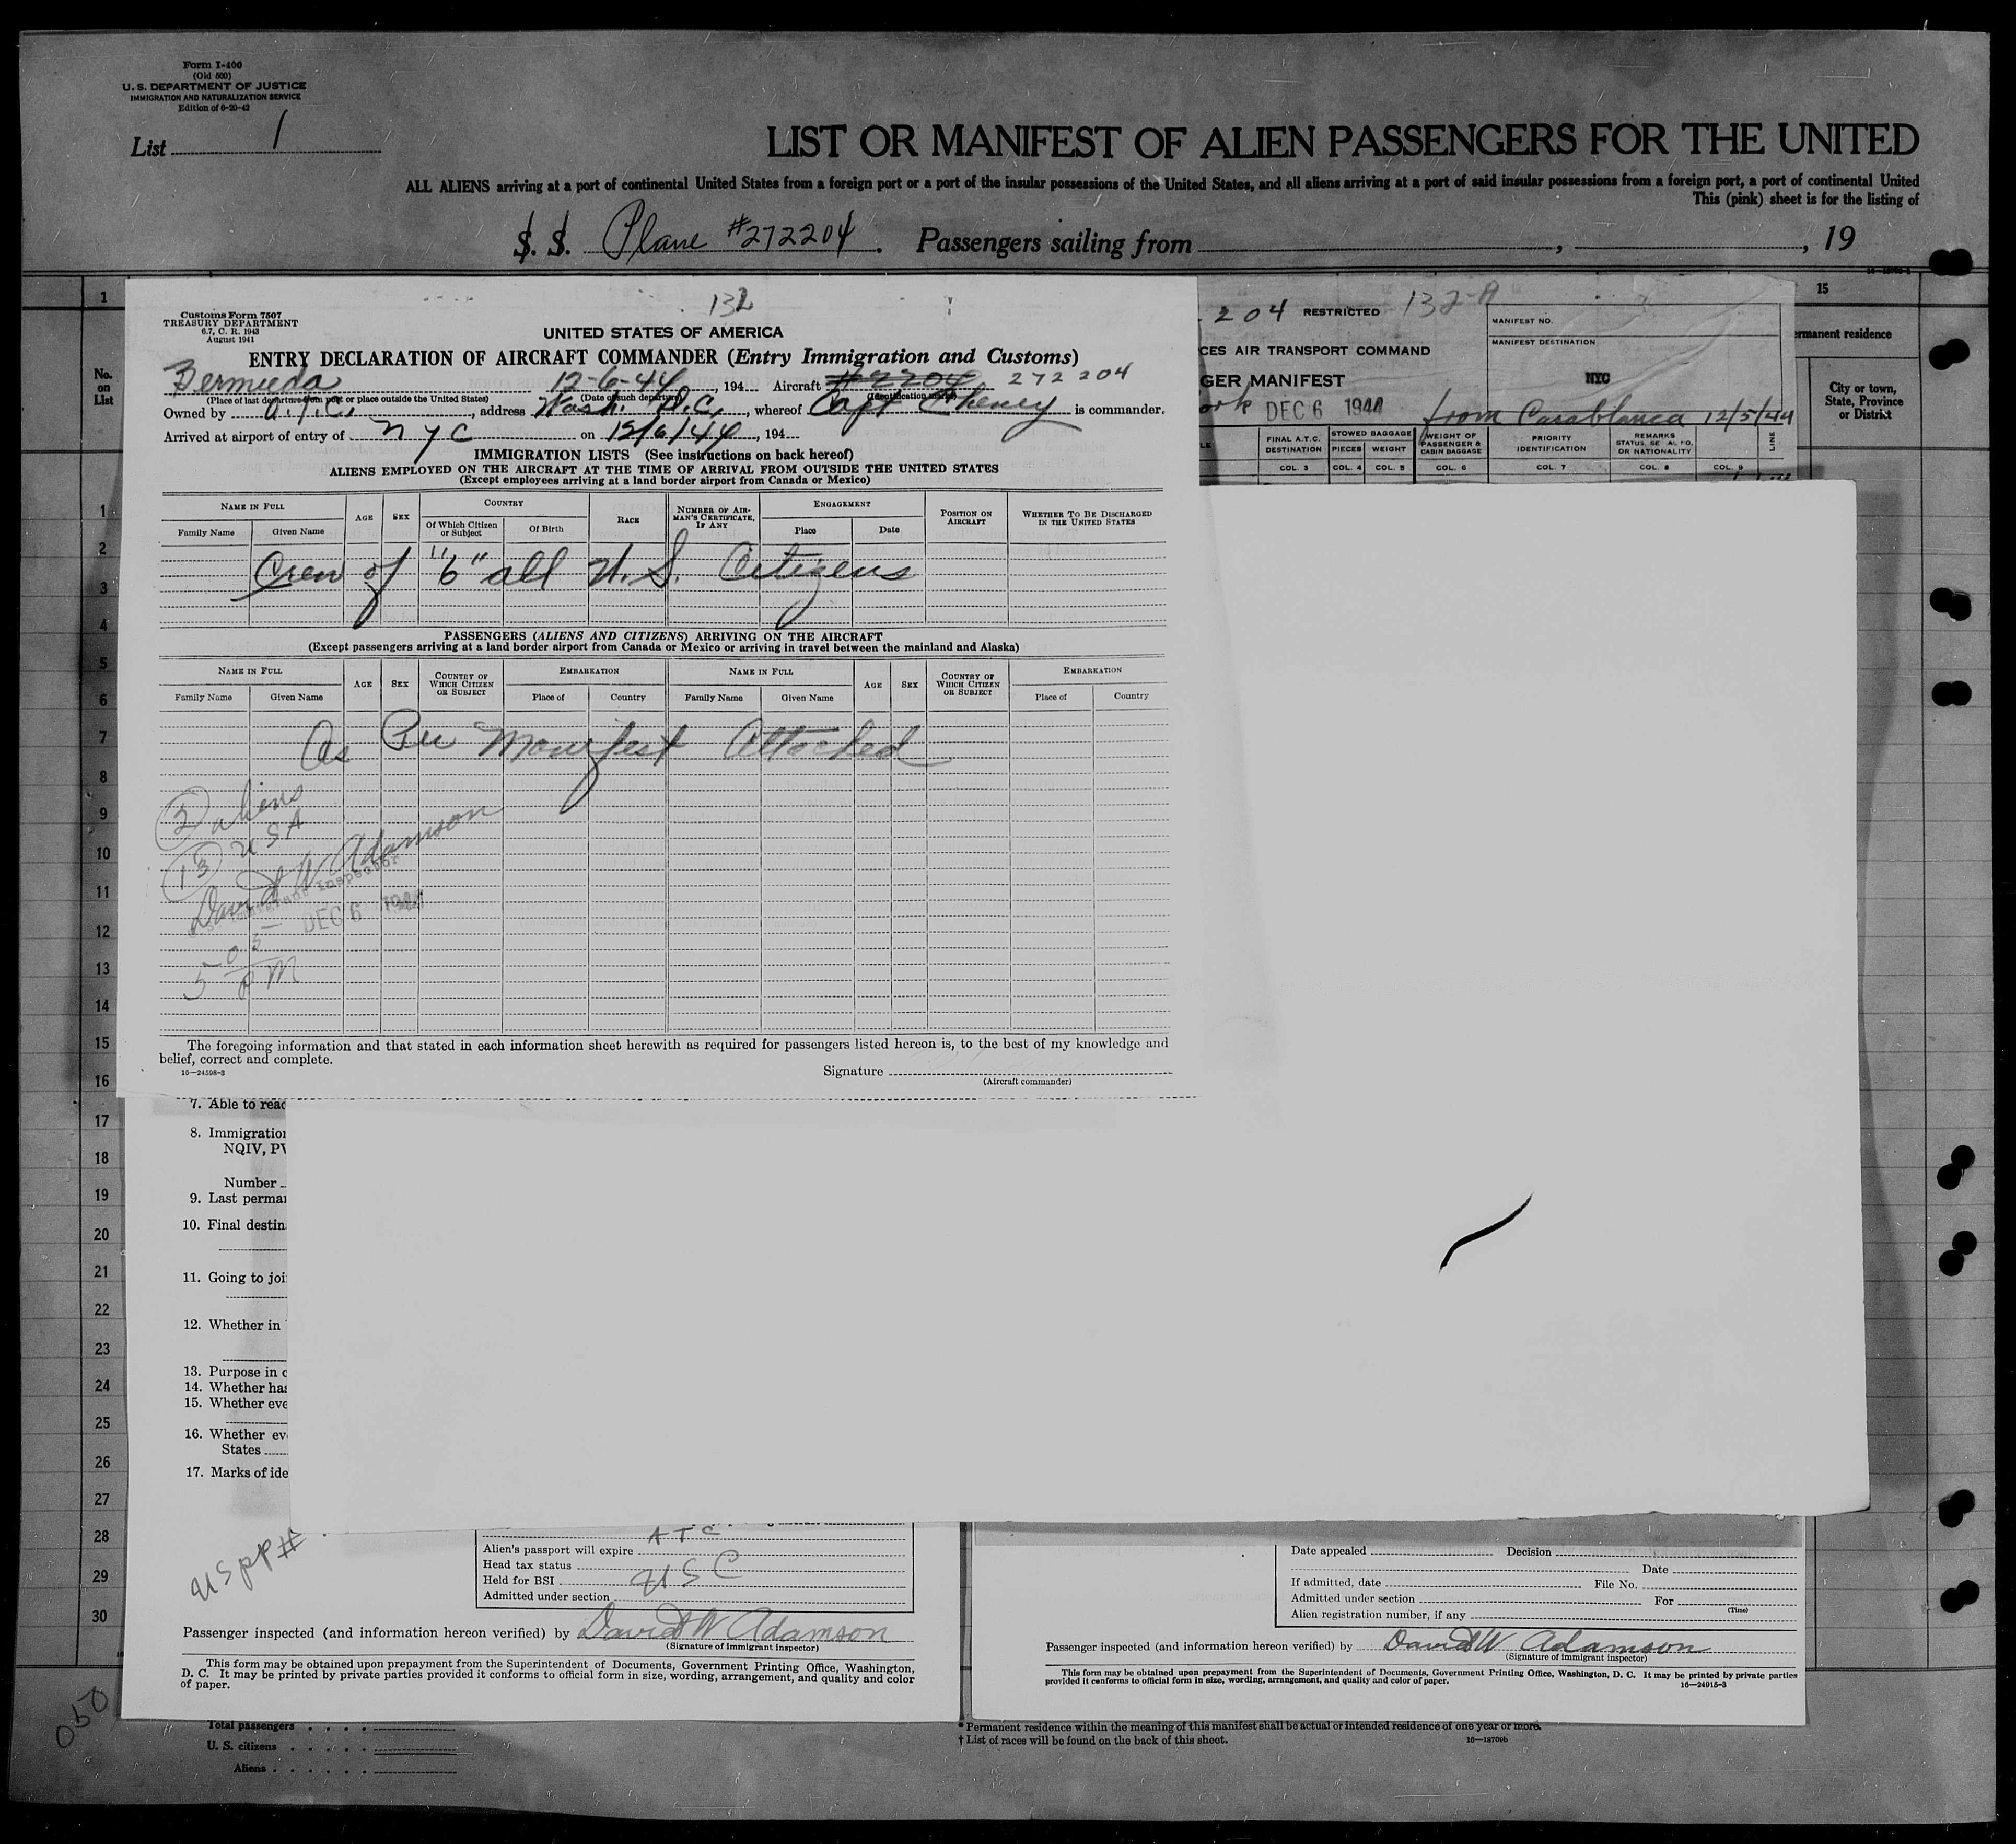 Form I-400
(Old 500)
U. S. DEPARTMENT OF JUSTICE
IMMIGRATION AND NATURALIZATION SERVICE
Edition of 6-20-42
List 1
LIST OR MANIFEST OF ALIEN PASSENGERS FOR THE UNITED
ALL ALIENS arriving at a port of continental United States from a foreign port or a port of the insular possessions of the United States, and all aliens arriving at a port of said insular possessions from a foreign port, a port of continental United
This (pink) sheet is for the listing of
S. S. Plane #272204. Passengers sailing from , , 19
132
Customs Form 7507
TREASURY DEPARTMENT
6.7, C. R. 1943
August 1941
UNITED STATES OF AMERICA
ENTRY DECLARATION OF AIRCRAFT COMMANDER (Entry Immigration and Customs)
Bermuda 12-6-44, 194 Aircraft #2204 272204
(Place of last departure from port or place outside the United States) (Date of such departure) (Identification marks)
Owned by A.T.C., address Wash. D.C., whereof Capt Cheney is commander.
Arrived at airport of entry of NYC on 12/6/44, 194
IMMIGRATION LISTS (See instructions on back hereof)
ALIENS EMPLOYED ON THE AIRCRAFT AT THE TIME OF ARRIVAL FROM OUTSIDE THE UNITED STATES
(Except employees arriving at a land border airport from Canada or Mexico)
NAME IN FULL AGE SEX COUNTRY RACE NUMBER OF AIRMAN'S CERTIFICATE, IF ANY ENGAGEMENT POSITION ON AIRCRAFT WHETHER TO BE DISCHARGED IN THE UNITED STATES
Family Name Given Name Of Which Citizen or Subject Of Birth Place Date
Crew of "6" all U. S. Citizens
PASSENGERS (ALIENS AND CITIZENS) ARRIVING ON THE AIRCRAFT
(Except passengers arriving at a land border airport from Canada or Mexico or arriving in travel between the mainland and Alaska)
NAME IN FULL AGE SEX COUNTRY OF WHICH CITIZEN OR SUBJECT EMBARKATION NAME IN FULL AGE SEX COUNTRY OF WHICH CITIZEN OR SUBJECT EMBARKATION
Family Name Given Name Place of Country Family Name Given Name Place of Country
As Per Manifest Attached
2 aliens
13 USA
David W Adamson
Immigrant Inspector
DEC 6 1944
5 05 PM
The foregoing information and that stated in each information sheet herewith as required for passengers listed hereon is, to the best of my knowledge and
belief, correct and complete.
16-24598-3
Signature
(Aircraft commander)
204 RESTRICTED 132-A
MANIFEST NO.
MANIFEST DESTINATION
NYC
CES AIR TRANSPORT COMMAND
GER MANIFEST
ork DEC 6 1944 from Casablanca 12/5/44
LE FINAL A.T.C. DESTINATION STOWED BAGGAGE PIECES WEIGHT WEIGHT OF PASSENGER & CABIN BAGGAGE PRIORITY IDENTIFICATION REMARKS OR NATIONALITY LINE
COL. 3 COL. 4 COL. 5 COL. 6 COL. 7 COL. 8 COL. 9
15
ermanent residence
City or town,
State, Province
or District
No.
on
List
1
1
2
3
4
5
6
7
8
9
10
11
12
13
14
15
16
17
18
19
20
21
22
23
24
25
26
27
28
29
30
7. Able to read
8. Immigration
NQIV, PV
Number
9. Last perma
10. Final destin
11. Going to joi
12. Whether in
13. Purpose in c
14. Whether has
15. Whether eve
16. Whether ev
States
17. Marks of ide
USPP#
ATC
Alien's passport will expire
Head tax status
Held for BSI USC
Admitted under section
Passenger inspected (and information hereon verified) by David W Adamson
(Signature of immigrant inspector)
This form may be obtained upon prepayment from the Superintendent of Documents, Government Printing Office, Washington,
D. C. It may be printed by private parties provided it conforms to official form in size, wording, arrangement, and quality and color
of paper.
Date appealed Decision
Date
If admitted, date File No.
Admitted under section For
(Time)
Alien registration number, if any
Passenger inspected (and information hereon verified) by David W Adamson
(Signature of immigrant inspector)
This form may be obtained upon prepayment from the Superintendent of Documents, Government Printing Office, Washington, D. C. It may be printed by private parties
provided it conforms to official form in size, wording, arrangement, and quality and color of paper.
16-24915-3
050
Total passengers
U. S. citizens
Aliens
* Permanent residence within the meaning of this manifest shall be actual or intended residence of one year or more.
† List of races will be found on the back of this sheet.
16-18709b